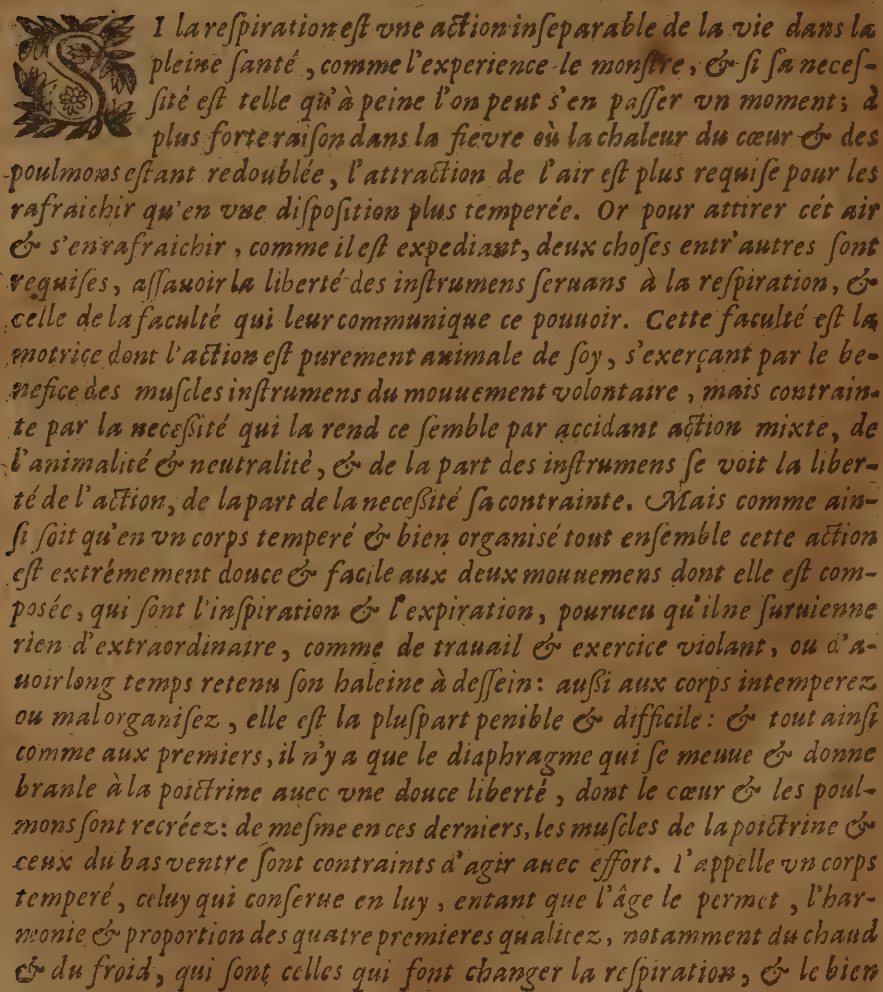 SI la reſpiration eſt vne action inseparable de la vie dans la
pleine ſanté, comme l'experience le monſtre, & ſi ſa neceſ-
ſité eſt telle qu'à peine l'on peut s'en paſſer vn moment; à
plus forte raiſon dans la fievre où la chaleur du cœur & des
poulmons eſtant redoublée, l'attraction de l'air eſt plus requiſe pour les
rafraichir qu'en vne diſpoſition plus temperée. Or pour attirer cét air
& s'en rafraichir, comme il eſt expediant, deux choſes entr'autres ſont
requiſes, aſſauoir la liberté des inſtrumens ſeruans à la reſpiration, &
celle de la faculté qui leur communique ce pouuoir. Cette faculté eſt la
motrice dont l'action eſt purement animale de ſoy, s'exerçant par le be-
nefice des muſcles inſtrumens du mouuement volontaire, mais contrain-
te par la neceſſité qui la rend ce ſemble par accidant action mixte, de
l'animalité & neutralité, & de la part des inſtrumens ſe voit la liber-
té de l'action, de la part de la neceſſité ſa contrainte. Mais comme ain-
ſi ſoit qu'en vn corps temperé & bien organisé tout enſemble cette action
eſt extrémement douce & facile aux deux mouuemens dont elle eſt com-
posée, qui ſont l'inſpiration & l'expiration, pourueu qu'il ne ſuruienne
rien d'extraordinaire, comme de trauail & exercice violant, ou d'a-
uoir long temps retenu ſon haleine à deſſein: auſſi aux corps intemperez
ou mal organiſez, elle eſt la pluſpart penible & difficile: & tout ainſi
comme aux premiers, il n'y a que le diaphragme qui ſe meuue & donne
branle à la poictrine auec vne douce liberté, dont le cœur & les poul-
mons ſont recréez: de meſme en ces derniers, les muſcles de la poictrine &
ceux du bas ventre ſont contraints d'agir auec effort. I'appelle vn corps
temperé, celuy qui conſerue en luy, entant que l'âge le permet, l'har-
monie & proportion des quatre premieres qualitez, notamment du chaud
& du froid, qui ſont celles qui font changer la reſpiration, & le bien